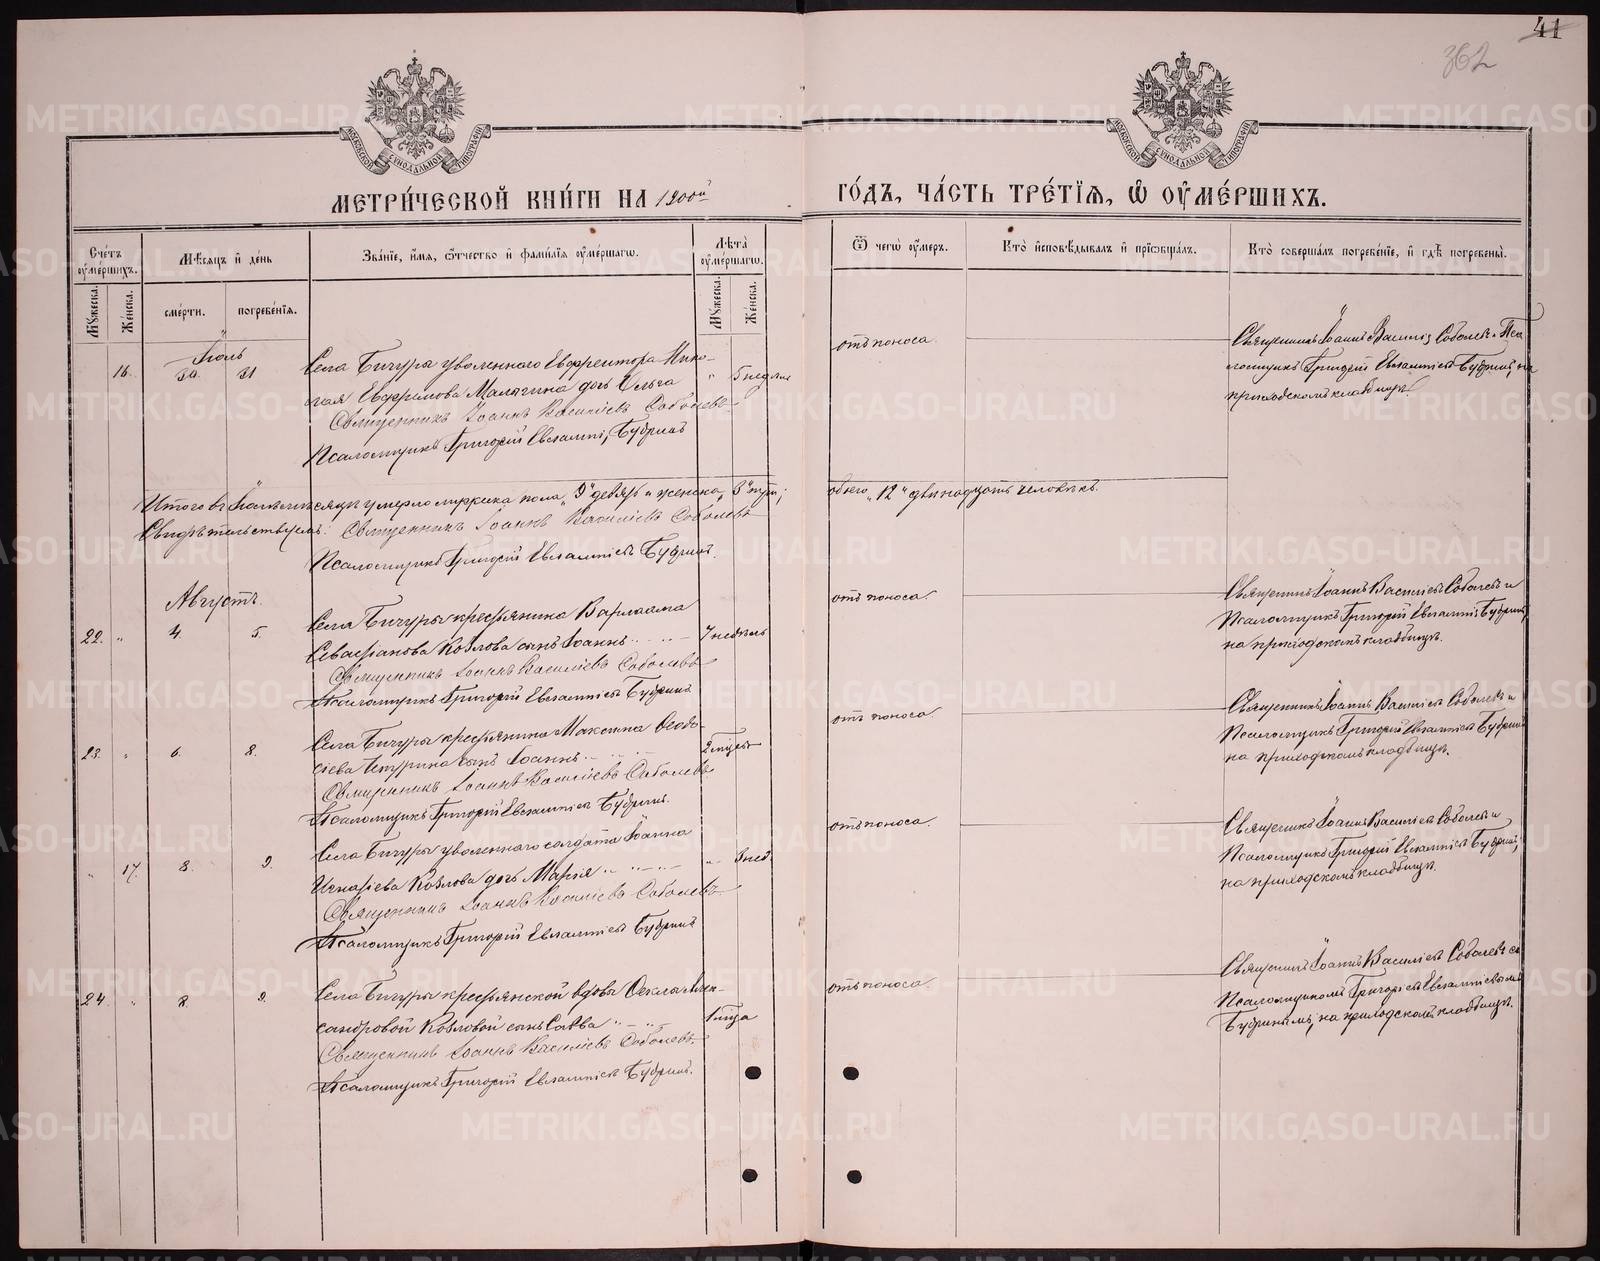 41
362
МЕТРИ́ЧЕСКОЙ КНИ́ГИ НА 1900й ГО́ДЪ, ЧА́СТЬ ТРЕ́ТІѦ, Ѡ҆ ОУ҆МЕ́РШИХЪ.
Сче́тъ оу҆ме́ршихъ.
Мꙋ́жеска.
Же́нска.
Мѣ́сѧцъ и҆ де́нь
сме́рти.
погребе́нїѧ.
Зва́нїе, и҆́мѧ, ѻ҆́тчество и҆ фами́лїѧ оу҆ме́ршагѡ.
Лѣ́та оу҆ме́ршагѡ.
Мꙋ́жеска.
Же́нска.
Ѿ чегѡ̀ оу҆́меръ.
Кто̀ и҆сповѣ́дывалъ и҆ прїѡбща́лъ.
Кто̀ соверша́лъ погребе́нїе, и҆ гдѣ̀ погребены̀.
Іюль
16. 30. 31
Села Бичуры уволеннаго Ефрейтора Нико-
лая Евфимова Малягина дочь Ольга " 5 недели
Священникъ Іоаннъ Василіевъ Соболевъ
Псаломщикъ Григорій Евлампіевъ Бубринъ
отъ поноса.
Священникъ Іоаннъ Василіевъ Соболевъ и Пса
ломщикъ Григорій Евлампіевъ Бубринъ, на
приходскомъ кладбищѣ.
Итого въ Іюлѣ мѣсяцѣ умерло мужска пола „9" девять и женска „3" три; обоего „12" двѣнадцать человѣкъ.
Свидѣтельствуемъ: Священникъ Іоаннъ Василіевъ Соболевъ
Псаломщикъ Григорій Евлампіевъ Бубринъ.
Августъ.
22. " 4. 5.
Села Бичуры крестьянина Варлаама
Севастіанова Козлова сынъ Іоаннъ 7 недѣль
Священникъ Іоаннъ Василіевъ Соболевъ
Псаломщикъ Григорій Евлампіевъ Бубринъ
отъ поноса.
Священникъ Іоаннъ Василіевъ Соболевъ и
Псаломщикъ Григорій Евлампіевъ Бубринъ,
на приходскомъ кладбищѣ.
23. " 6. 8.
Села Бичуры крестьянина Максима Феодо-
сіева сынъ Іоаннъ
Священникъ Іоаннъ Василіевъ Соболевъ
Псаломщикъ Григорій Евлампіевъ Бубринъ.
отъ поноса.
Священникъ Іоаннъ Василіевъ Соболевъ и
Псаломщикъ Григорій Евлампіевъ Бубринъ
на приходскомъ кладбищѣ.
" 17. 8. 9.
Села Бичуры уволеннаго солдата Іоанна
Игнатіева Козлова дочь Марія " 3 нед.
Священникъ Іоаннъ Василіевъ Соболевъ
Псаломщикъ Григорій Евлампіевъ Бубринъ
отъ поноса.
Священникъ Іоаннъ Василіевъ Соболевъ и
Псаломщикъ Григорій Евлампіевъ Бубринъ,
на приходскомъ кладбищѣ.
24. " 8. 9.
Села Бичуры крестьянской вдовы Феклы Алек-
сандровой Козловой сынъ Савва 1 года
Священникъ Іоаннъ Василіевъ Соболевъ.
Псаломщикъ Григорій Евлампіевъ Бубринъ.
отъ поноса.
Священникъ Іоаннъ Василіевъ Соболевъ съ
Псаломщикомъ Григоріемъ Евлампіевымъ
Бубринымъ, на приходскомъ кладбищѣ.
METRIKI.GASO-URAL.RU